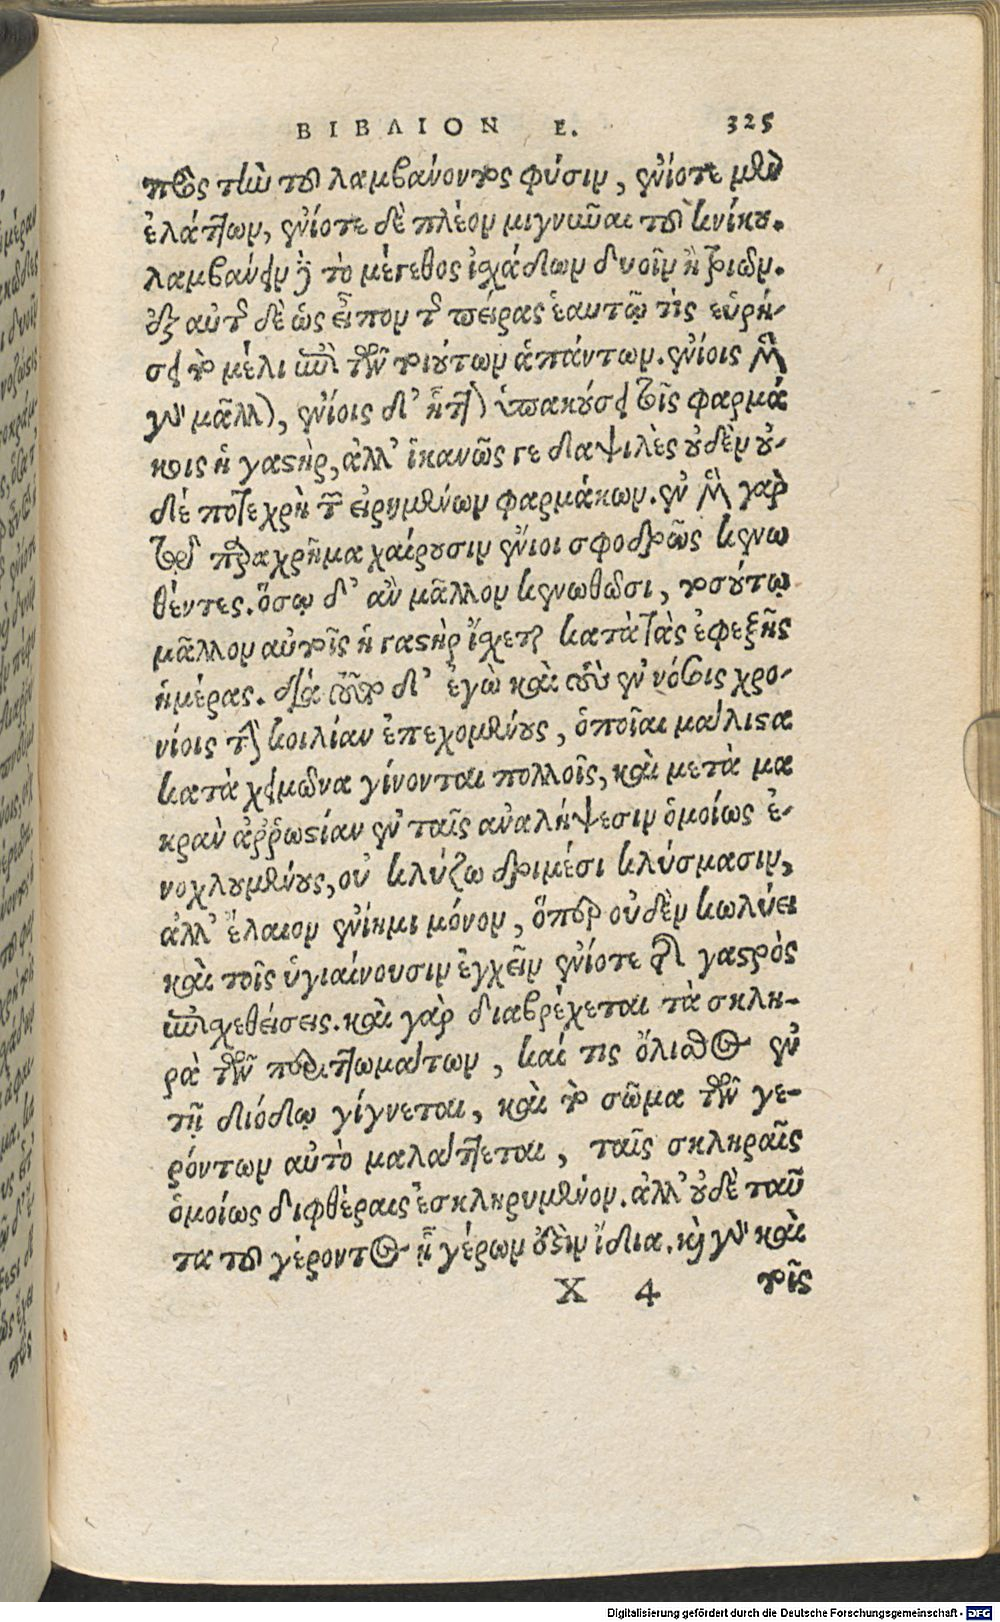 ΒΙΒΛΙΟΝ Ε. 325
πρὸς τὴν τοῦ λαμβάνοντος φύσιν, ἐνίοτε μὲν
ἐλάττων, ἐνίοτε δὲ πλέον μιγνῦναι τοῦ κνίκου.
λαμβάνειν δὲ τὸ μέγεθος ἰσχάδων δυοῖν ἢ τριῶν.
ἐξ αὐτῆς δὲ ὡς εἶπον τῆς πείρας ἑαυτῷ τὶς εὑρή-
σει τὸ μέλι ἐπὶ τῶν τοιούτων ἁπάντων. ἐνίοις μὲν
γὰρ μᾶλλον, ἐνίοις δ' ἧττον ὑπακούσει τοῖς φαρμά
κοις ἡ γαστὴρ, ἀλλ' ἱκανῶς γε δαψιλὲς οὐδὲν οὐ-
δέ ποτε χρὴ τῶν εἰρημένων φαρμάκων. ἐν μὲν γὰρ
τῷ παραχρῆμα χαίρουσιν ἔνιοι σφοδρῶς κενω
θέντες. ὅσῳ δ' ἂν μᾶλλον κενωθῶσι, τοσούτῳ
μᾶλλον αὐτοῖς ἡ γαστὴρ ἴσχεται κατὰ τὰς ἐφεξῆς
ἡμέρας. διὰ τοῦτο δ' ἐγὼ καὶ τοὺς ἐν νόσοις χρο-
νίοις τὴν κοιλίαν ἐπεχομένους, ὁποῖαι μάλιστα
κατὰ χειμῶνα γίνονται πολλοῖς, καὶ μετὰ μα
κρὰν ἀῤῥωστίαν ἐν ταῖς ἀναλήψεσιν ὁμοίως ἐ-
νοχλουμένους, οὐ κλύζω δριμέσι κλύσμασιν,
ἀλλ' ἔλαιον ἐνίημι μόνον, ὅπερ οὐδὲν κωλύει
καὶ τοῖς ὑγιαίνουσιν ἐγχεῖν ἐνίοτε τῆς γαστρὸς
ἐπισχεθείσεις. καὶ γὰρ διαβρέχεται τὰ σκλη-
ρὰ τῶν περιττωμάτων, καί τις ὄλισθος ἐν
τῇ διόδῳ γίγνεται, καὶ τὸ σῶμα τῶν γε-
ρόντων αὐτὸ μαλάττεται, ταῖς σκληραῖς
ὁμοίως διφθέραις ἐσκληρυμένον. ἀλλ' οὐδὲ ταῦ
τα τοῦ γέροντος ᾗ γέρων ἐστὶν ἴδια. καὶ γὰρ καὶ
X 4 τοῖς